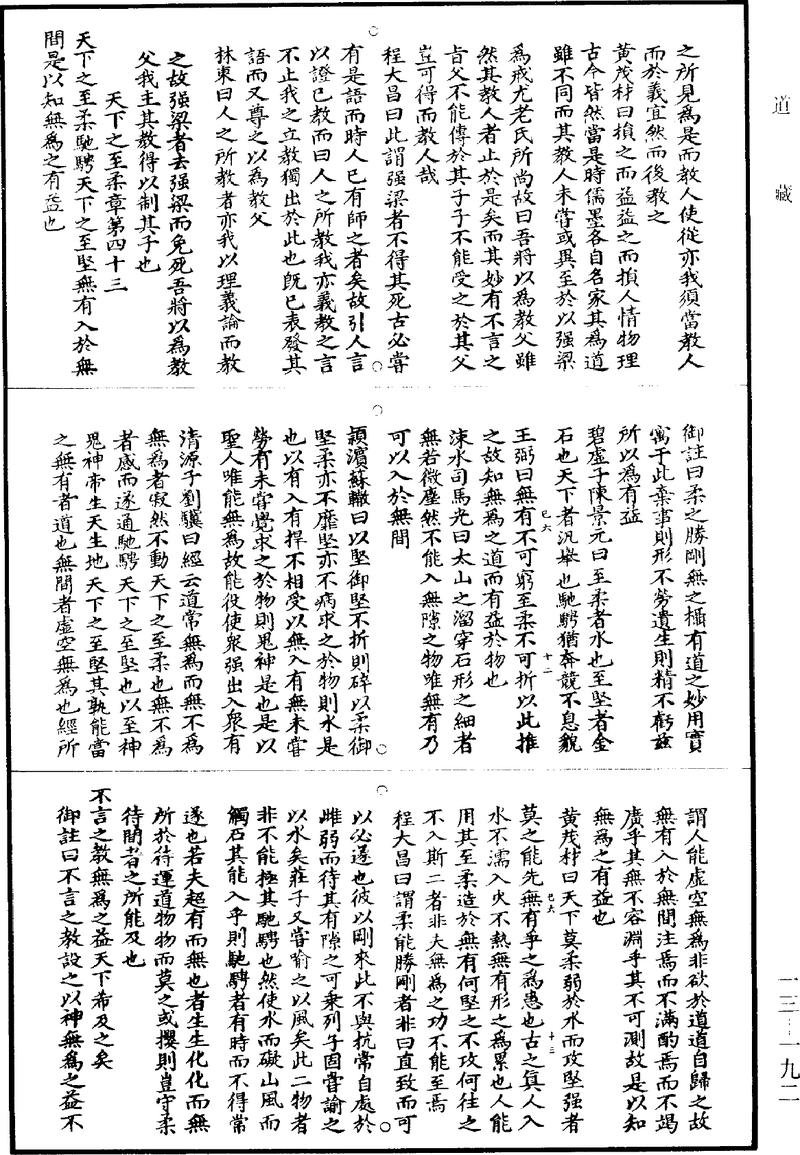 道藏
之所見為是而教人使從亦我須當教人
而於義宜然而後教之
黃茂材曰損之而益益之而損人情物理
古今皆然當是時儒墨各自名家其為道
雖不同而其教人未嘗或異至於以强梁
為戒尤老氏所尚故曰吾將以為教父雖
然其教人者止於是矣而其妙有不言之
旨父不能傳於其子子不能受之於其父
豈可得而教人哉
程大昌曰此謂强梁者不得其死古必嘗
有是語而時人已有師之者矣故引人言
以證已教而曰人之所教我亦義教之言
不止我之立教獨出於此也旣已表發其
語而又尊之以為教父
林東曰人之所教者亦我以理義論而教
之故强梁者去强梁而免死吾將以為教
父我主其教得以制其子也
天下之至柔章第四十三
天下之至柔馳騁天下之至堅無有入於無
間是以知無為之有益也
御註曰柔之勝剛無之攝有道之妙用實
寓于此棄事則形不勞遺生則精不虧茲
所以為有益
碧虛子陳景元曰至柔者水也至堅者金
石也天下者汎舉也馳騁猶奔競不息貌
王弼曰無有不可窮至柔不可折以此推
之故知無為之道而有益於物也
涑水司馬光曰太山之溜穿石形之細者
無若微塵然不能入無隙之物唯無有乃
可以入於無間
潁濱蘇轍曰以堅御堅不折則碎以柔御
堅柔亦不靡堅亦不病求之於物則水是
也以有入有捍不相受以無入有無未嘗
勞有未嘗覺求之於物則鬼神是也是以
聖人唯能無為故能役使衆强出入衆有
清源子劉驥曰經云道常無為而無不為
無為者寂然不動天下之至柔也無不為
者感而遂通馳騁天下之至堅也以至神
鬼神帝生天生地天下之至堅其孰能當
之無有者道也無間者虛空無為也經所
謂人能虛空無為非欲於道道自歸之故
無有入於無間注焉而不滿酌焉而不竭
廣乎其無不容淵乎其不可測故是以知
無為之有益也
黃茂材曰天下莫柔弱於水而攻堅强者
莫之能先無有爭之為患也古之眞人入
水不濡入火不熱無有形之為累也人能
用其至柔造於無有何堅之不攻何往之
不入斯二者非夫無為之功不能至焉
程大昌曰謂柔能勝剛者非曰直致而可
以必遂也彼以剛來此不與抗常自處於
雌弱而待其有隙之可乘列子固嘗諭之
以水矣莊子又嘗喻之以風矣此二物者
非不能極其馳騁也然使水而礙山風而
觸石其能入乎則馳騁者有時而不得常
遂也若夫超有而無也者生生化化而無
所於待運道物物而莫之或攖則豈守柔
待間者之所能及也
不言之教無為之益天下希及之矣
御註曰不言之教設之以神無為之益不
已六
十二
已六
十三
一三–一九二